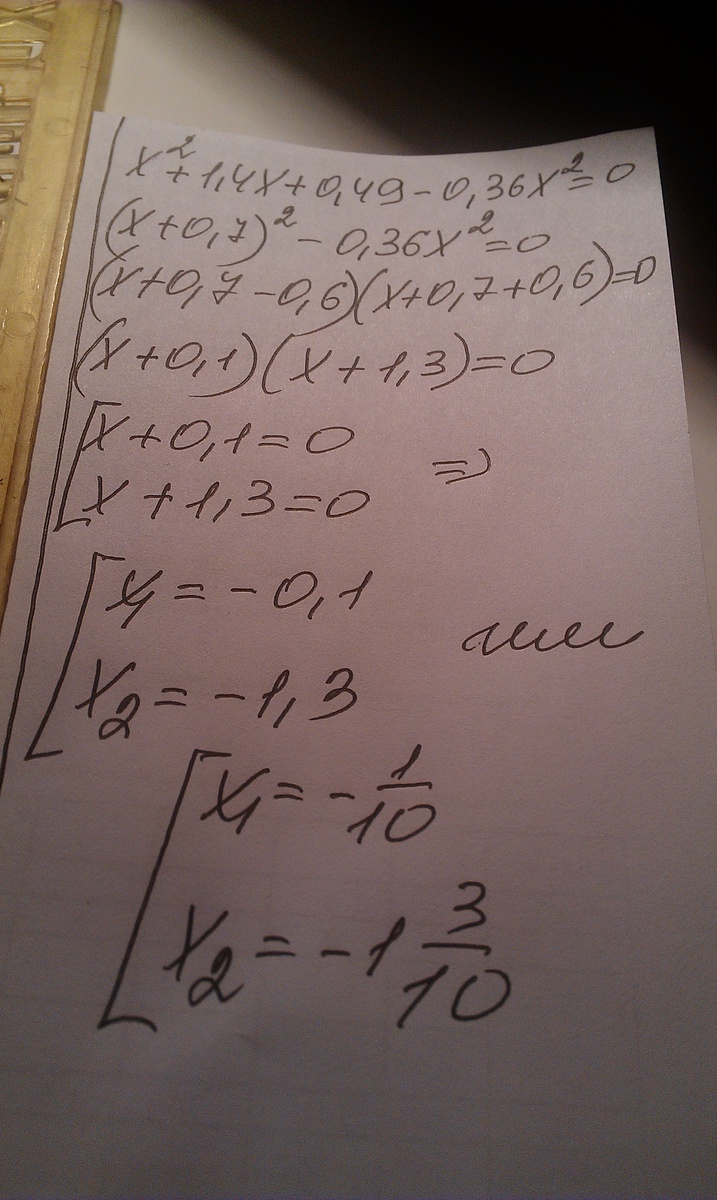 x² + 1,4x + 0,49 - 0,36x² = 0
(x + 0,7)² - 0,36x² = 0
(x + 0,7 - 0,6)(x + 0,7 + 0,6) = 0
(x + 0,1)(x + 1,3) = 0
[x + 0,1 = 0
x + 1,3 = 0 ⇒
[x₁ = -0,1
x₂ = -1,3 или
[x₁ = -1/10
x₂ = -1 3/10